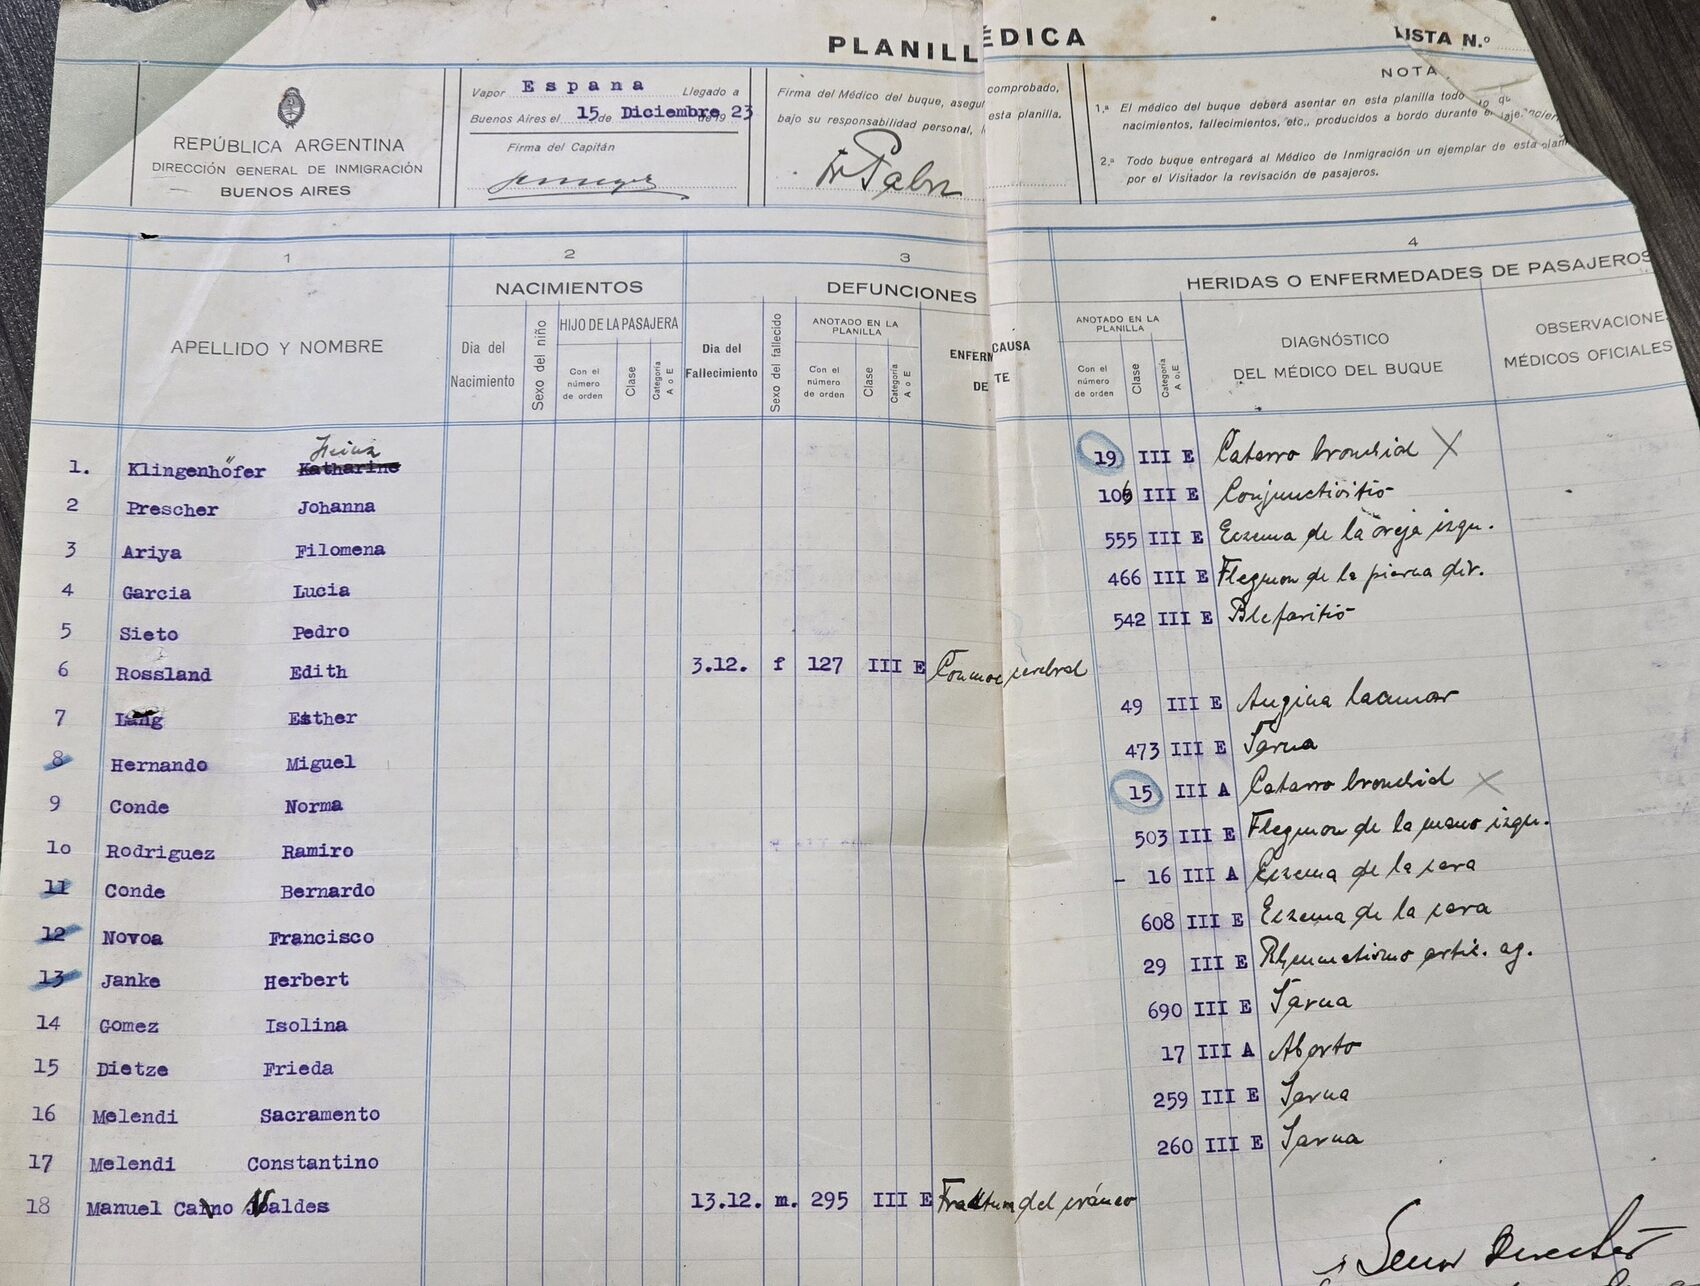 PLANILL ÉDICA LISTA N.º
REPÚBLICA ARGENTINA
DIRECCIÓN GENERAL DE INMIGRACIÓN
BUENOS AIRES
Vapor Espana Llegado a
Buenos Aires el 15 de Diciembre de 19 23
Firma del Capitán
Firma del Médico del buque, asegu comprobado,
bajo su responsabilidad personal, esta planilla.
NOTA
1.ª El médico del buque deberá asentar en esta planilla todo
nacimientos, fallecimientos, etc., producidos a bordo durante el
2.ª Todo buque entregará al Médico de Inmigración un ejemplar de esta
por el Visitador la revisación de pasajeros.
1 2 3 4
APELLIDO Y NOMBRE
NACIMIENTOS
Dia del Nacimiento
Sexo del niño
HIJO DE LA PASAJERA
Con el número de orden
Clase
Categoría A o E
DEFUNCIONES
Dia del Fallecimiento
Sexo del fallecido
ANOTADO EN LA PLANILLA
Con el número de orden
Clase
Categoría A o E
ENFERM CAUSA
DE TE
HERIDAS O ENFERMEDADES DE PASAJEROS
ANOTADO EN LA PLANILLA
Con el número de orden
Clase
Categoría A o E
DIAGNÓSTICO
DEL MÉDICO DEL BUQUE
OBSERVACIONE
MÉDICOS OFICIALES
Heinz
1. Klingenhöfer Katharine 19 III E Catarro bronchial X
2 Prescher Johanna 106 III E Conjunctivitis
3 Ariya Filomena 555 III E Eczema de la oreja izqu.
4 Garcia Lucia 466 III E Flegmon de la pierna dir.
5 Sieto Pedro 542 III E Blefaritis
6 Rossland Edith 3.12. f 127 III E cerebral
7 Lang Esther 49 III E Angina lacunar
8 Hernando Miguel 473 III E Sarna
9 Conde Norma 15 III A Catarro bronchial X
10 Rodriguez Ramiro 503 III E Flegmon de la mano izqu.
11 Conde Bernardo - 16 III A Eczema de la cara
12 Novoa Francisco 608 III E Eczema de la cara
13 Janke Herbert 29 III E Rheumatismo artic. ag.
14 Gomez Isolina 690 III E Sarna
15 Dietze Frieda 17 III A Aborto
16 Melendi Sacramento 259 III E Sarna
17 Melendi Constantino 260 III E Sarna
18 Manuel Cano 13.12. m. 295 III E del cráneo
Senor Director